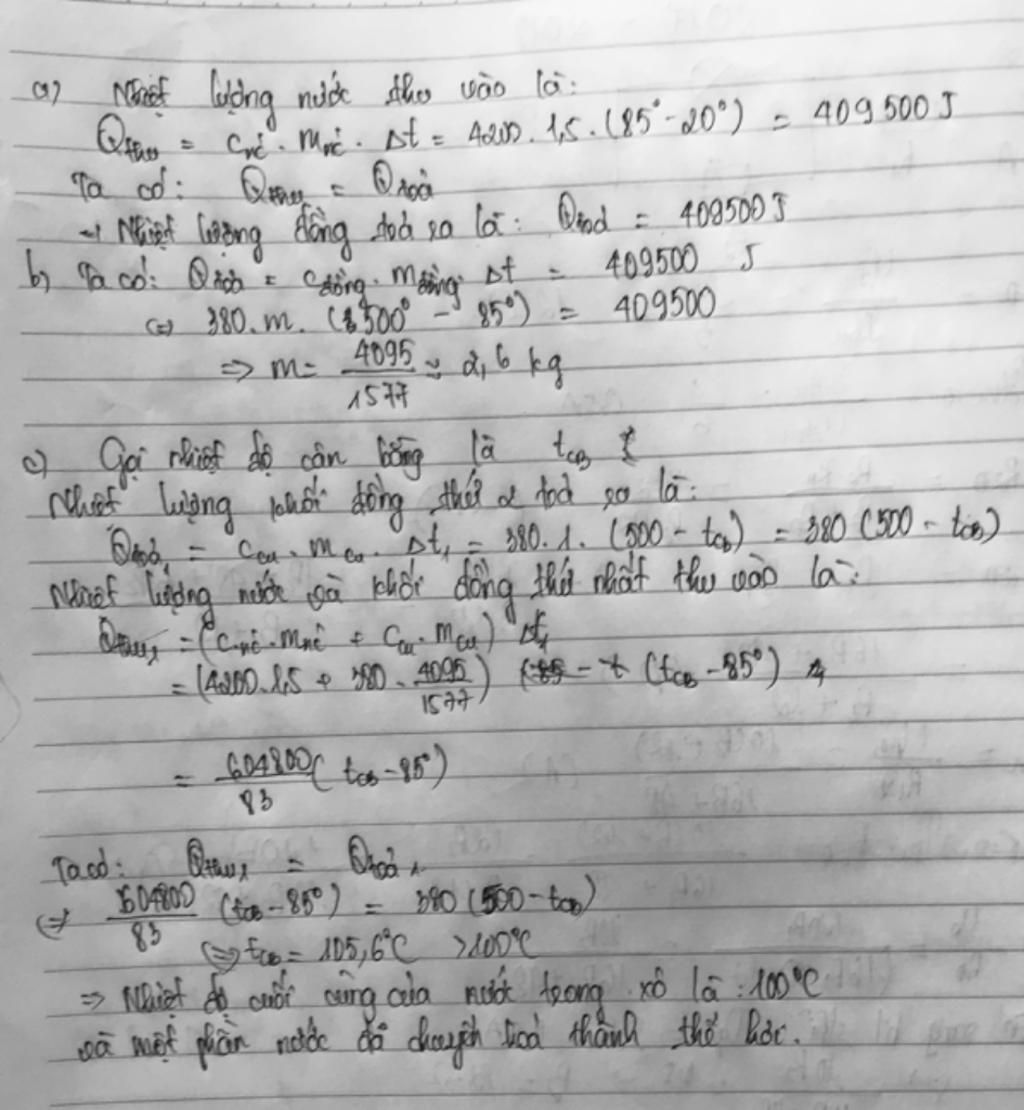 a) Nhiệt lượng nước thu vào là:
Qthu = Cnc. mnc. Δt = 4200. 1,5. (85° - 20°) = 409500 J
Ta có: Qthu = Qtoả
→ Nhiệt lượng đồng toả ra là: Qtoả = 409500 J
b) Ta có: Qtoả = Cđồng. mđồng. Δt = 409500 J
⇔ 380. m. (500° - 85°) = 409500
⇒ m = 4095/1577 ≈ 2,6 kg
c) Gọi nhiệt độ cân bằng là tcb
Nhiệt lượng khối đồng thứ 2 toả ra là:
Qtoả1 = Ccu. mcu. Δt1 = 380. 1. (500 - tcb) = 380 (500 - tcb)
Nhiệt lượng nước và khối đồng thứ nhất thu vào là:
Qthu1 = (Cnc. mnc + Ccu. mcu) Δt1
= (4200. 1,5 + 380. 4095/1577) (tcb - 85°)
= 604800/83 (tcb - 85°)
Ta có: Qthu1 = Qtoả1
⇔ 604800/83 (tcb - 85°) = 380 (500 - tcb)
⇔ tcb = 105,6°C > 100°C
⇒ Nhiệt độ cuối cùng của nước trong xô là: 100°C
và một phần nước đã chuyển hoá thành thể hơi.